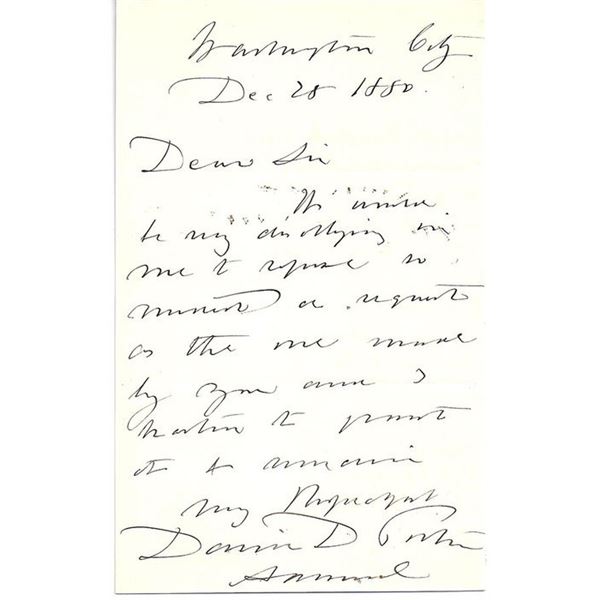 Washington City
Dec 28 1880.
Dear Sir
It would
be very disobliging in
me to refuse so
modest a request
as the one made
by you and I
hasten to grant
it &amp; remain
very Respectfully
David D. Porter
Admiral